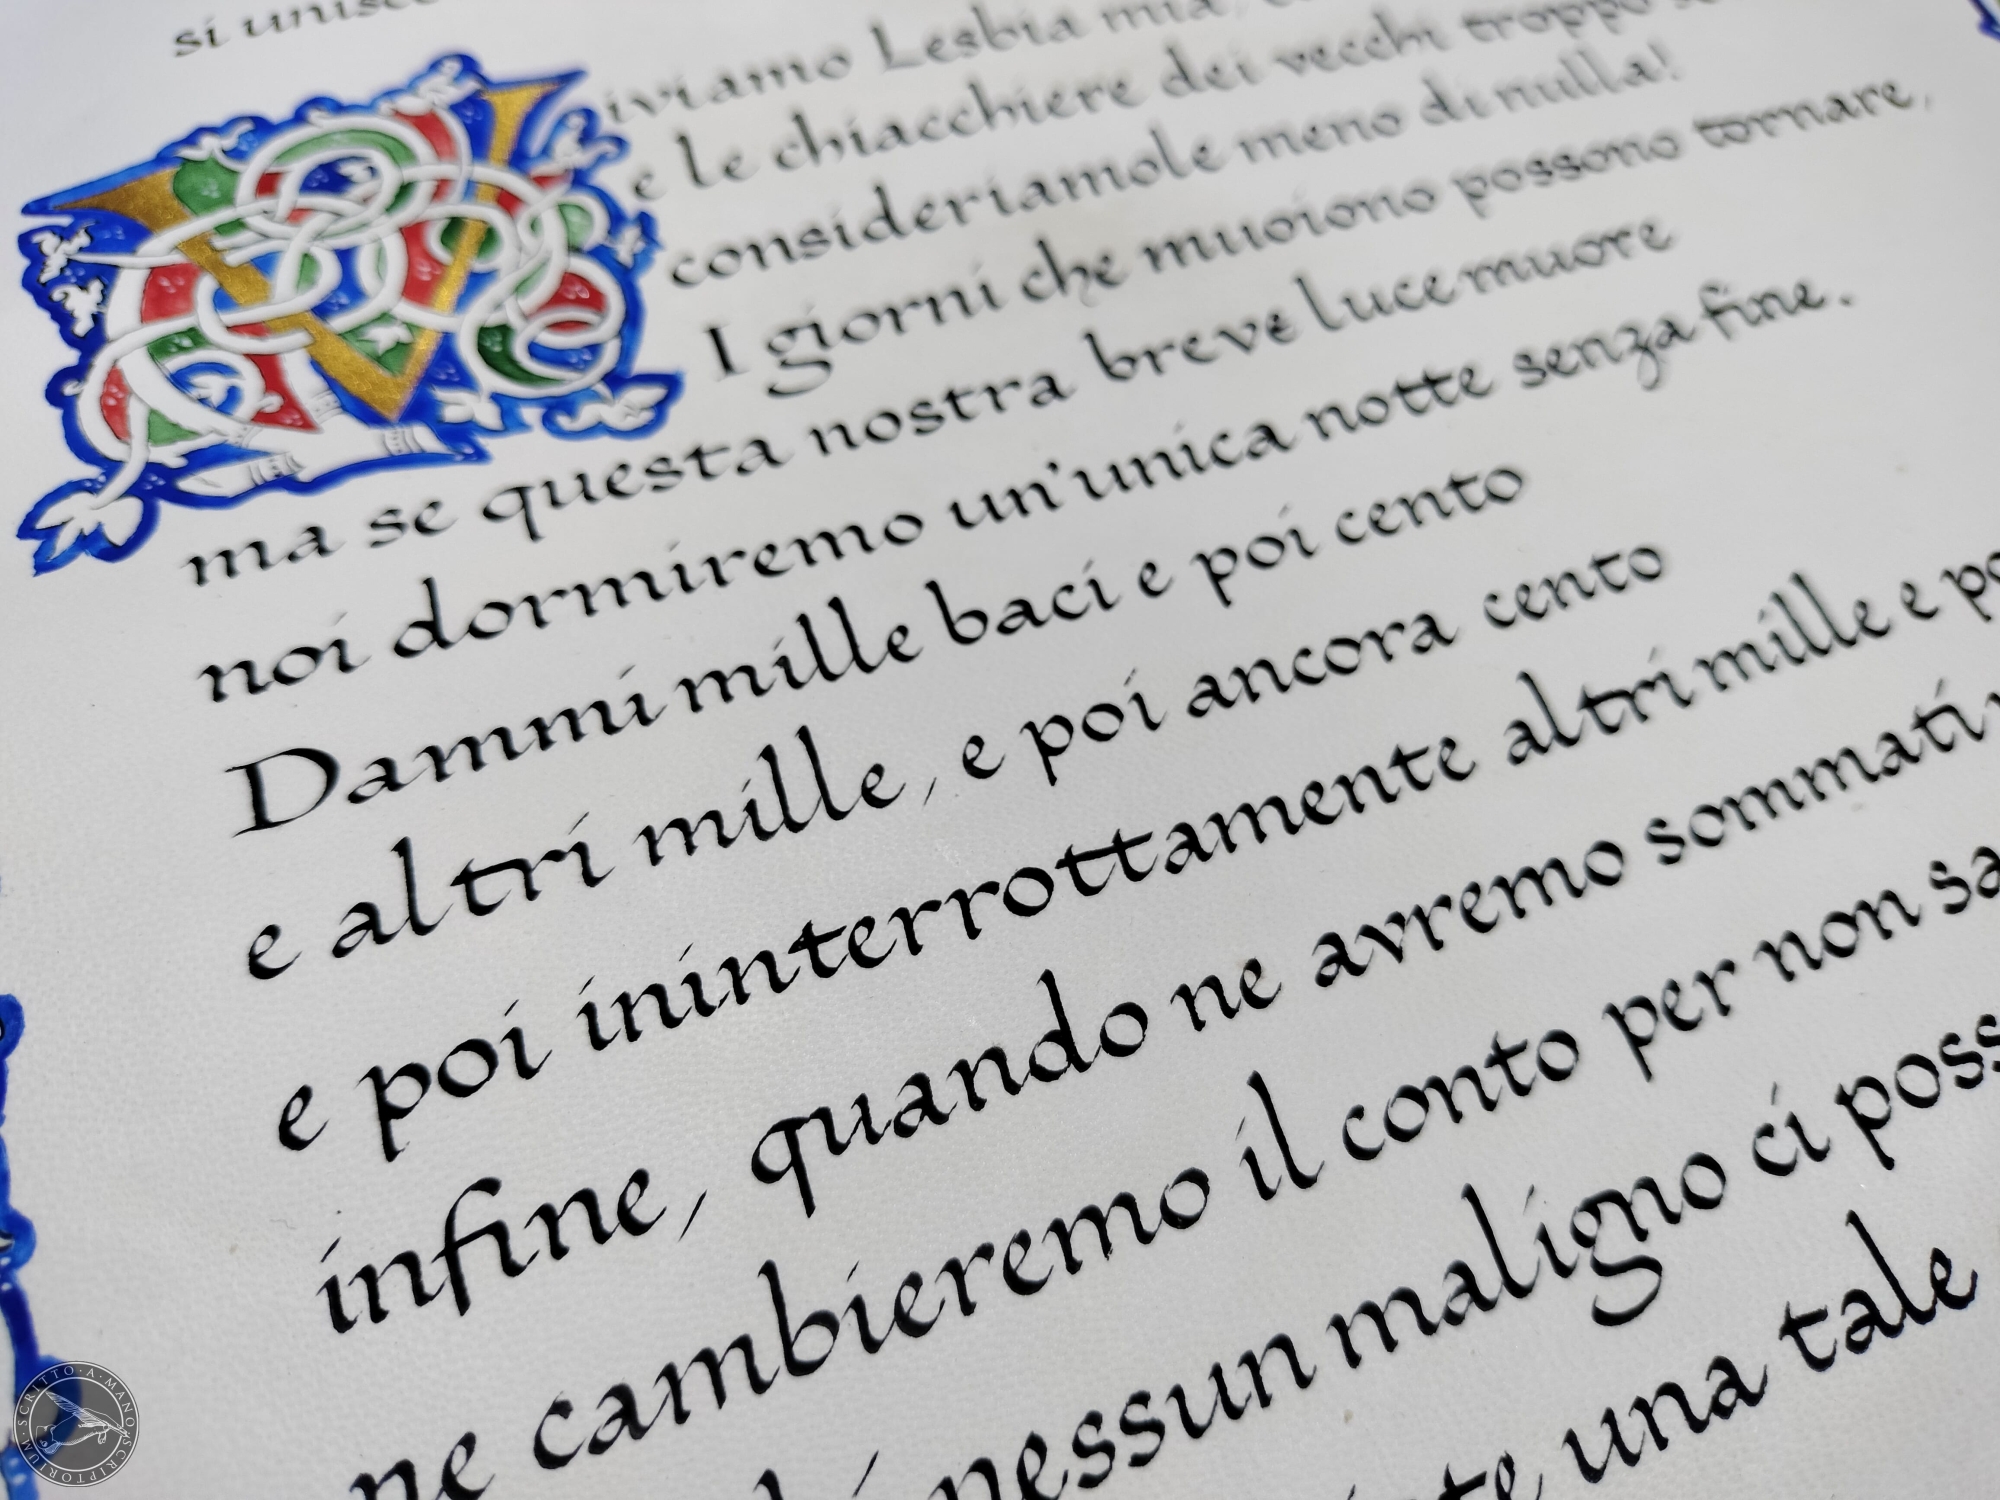 si unisce
Viviamo Lesbia mia,
e le chiacchiere dei vecchi troppo
consideriamole meno di nulla!
I giorni che muoiono possono tornare,
ma se questa nostra breve luce muore
noi dormiremo un'unica notte senza fine.
Dammi mille baci e poi cento
e altri mille, e poi ancora cento
e poi ininterrottamente altri mille e
infine, quando ne avremo sommati
ne cambieremo il conto per non
nessun maligno ci
una tale
SCRITTO·A·MANO·SCRIPTORIUM·